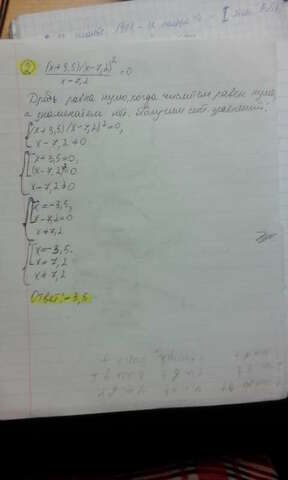 ② (x+3,5)(x-7,2)² / x-7,2 = 0
Дробь равна нулю, когда числитель равен нулю,
а знаменатель нет. Получим сист. уравнений:
{ (x+3,5)(x-7,2)²=0,
x-7,2≠0
{ [ x+3,5=0,
(x-7,2)²=0
x-7,2≠0
{ [ x=-3,5,
x-7,2=0
x≠7,2
{ [ x=-3,5.
x=7,2
x≠7,2
Ответ: -3,5